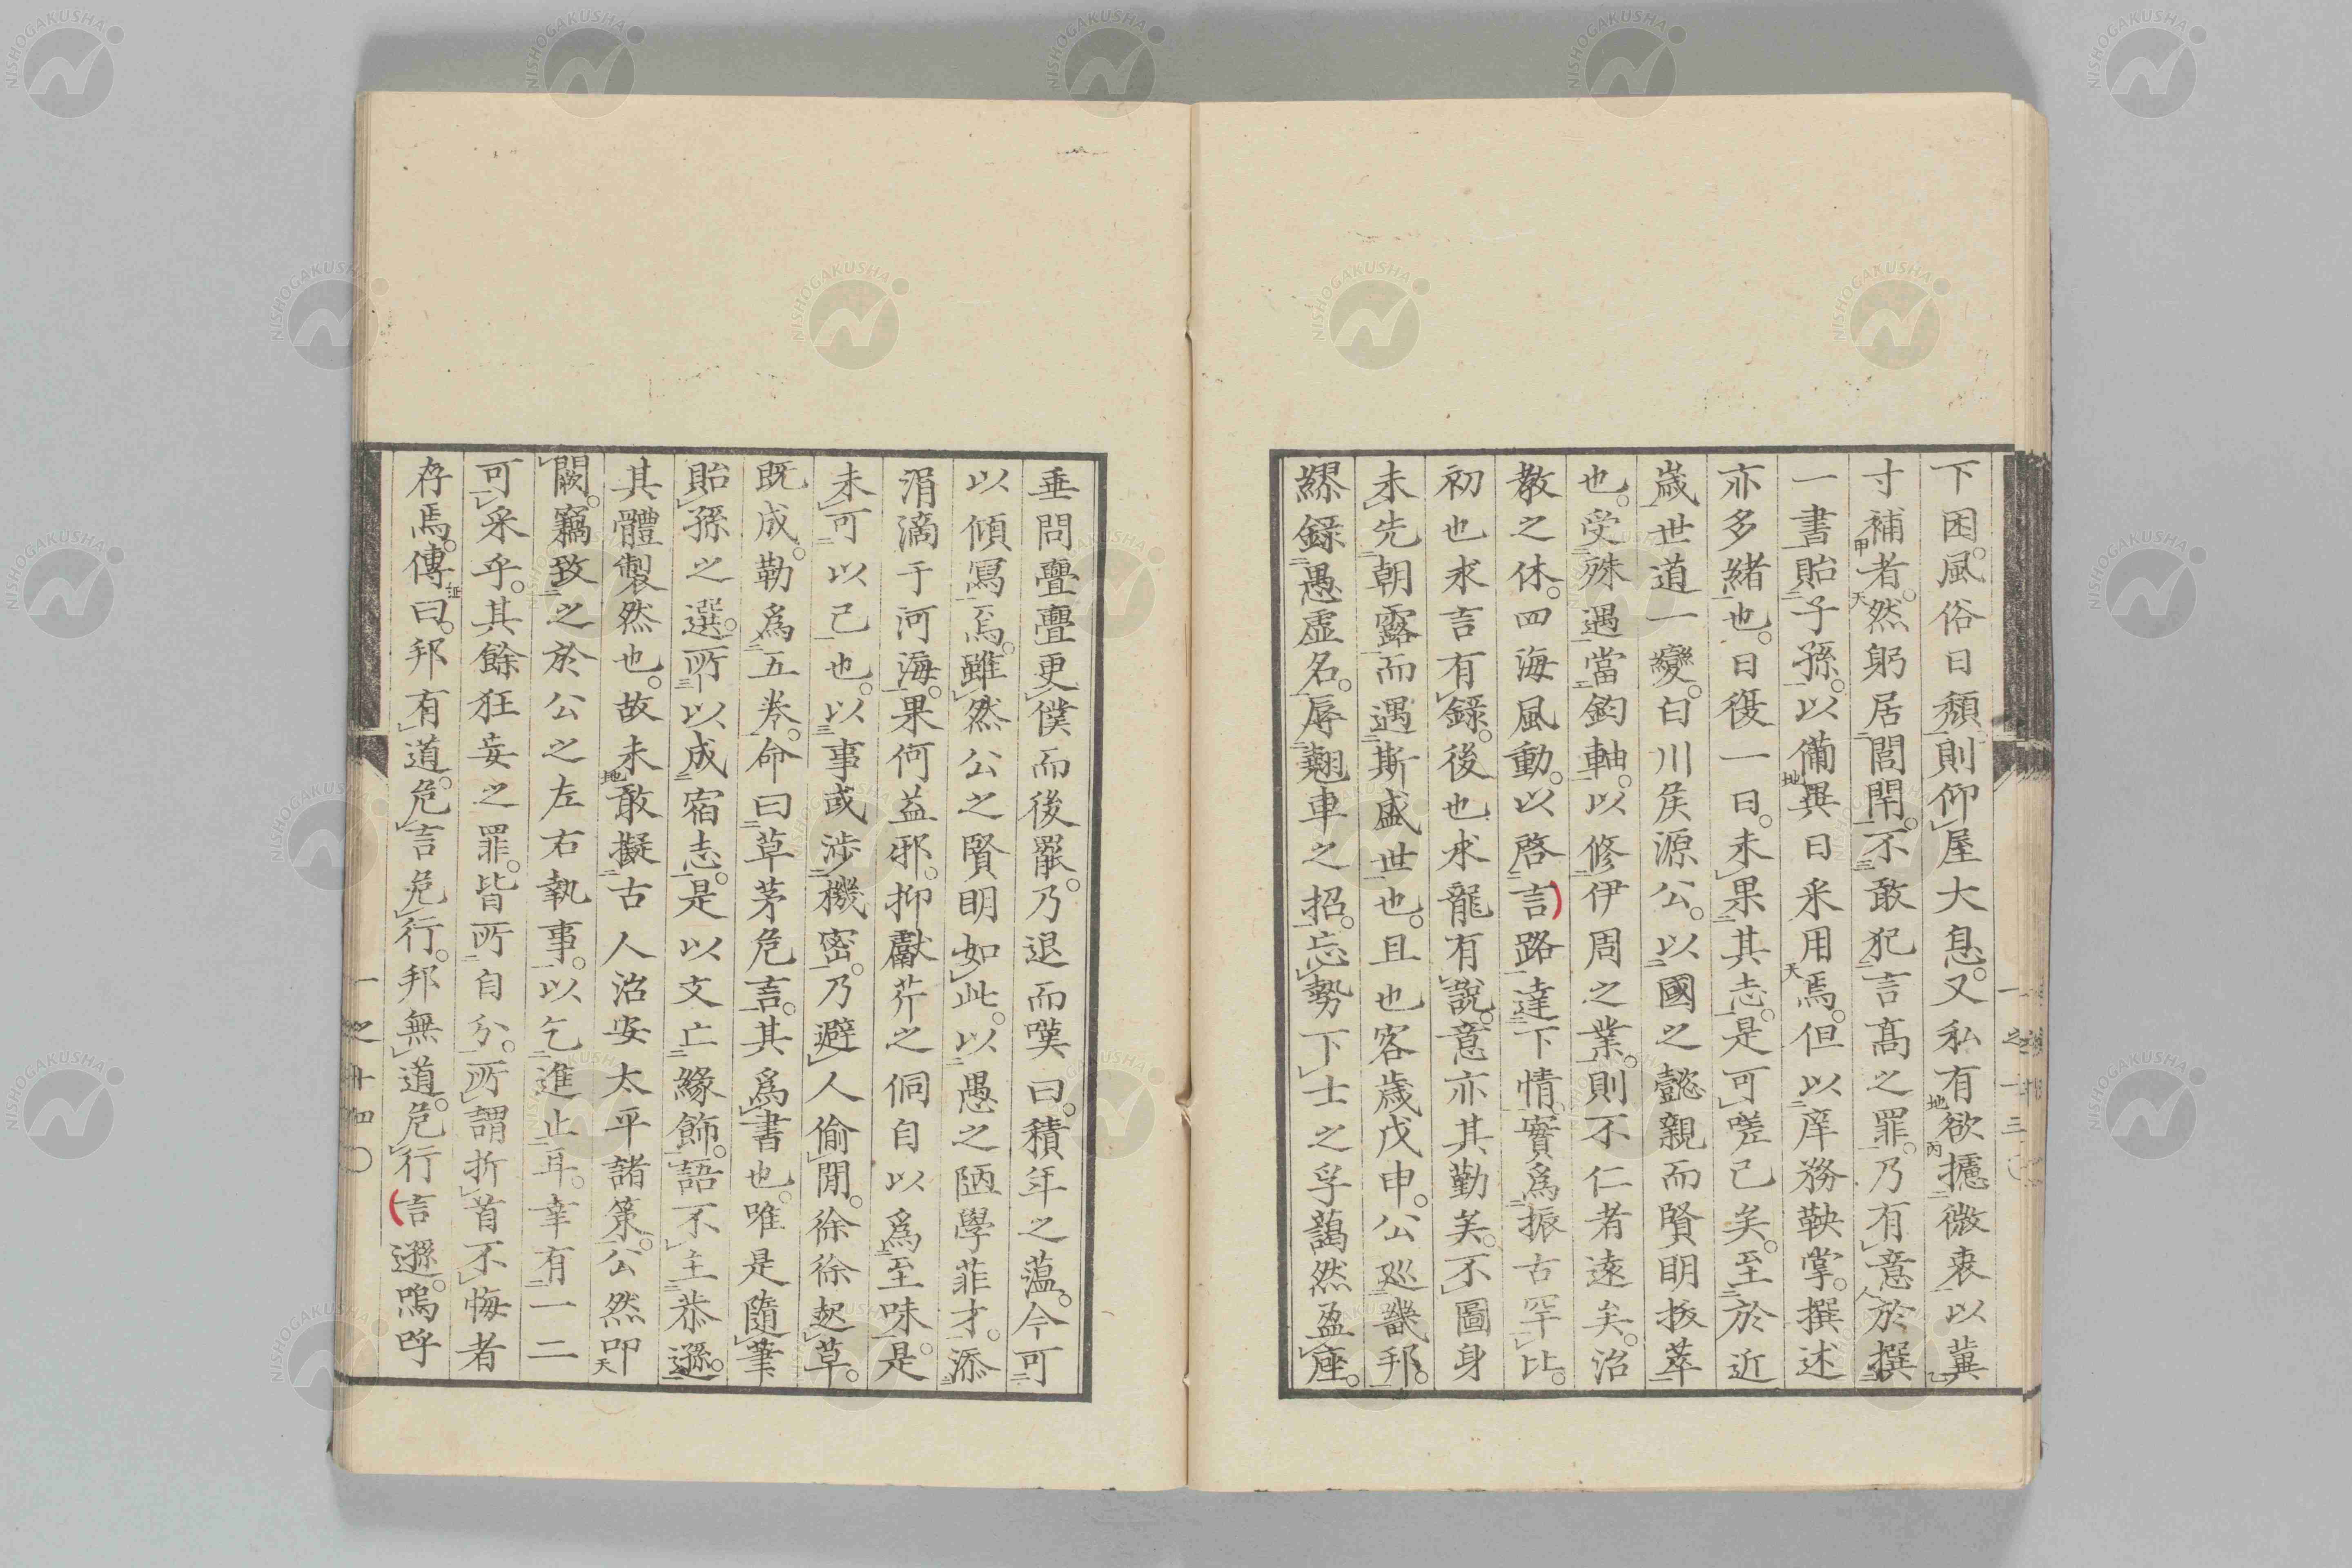 下困。風俗日頽則仰屋大息。又私有欲攄微衷以冀
寸補者。然躬居閭閈。不敢犯言高之罪。乃有意於撰
一書貽子孫。以備異日采用焉。但以庠務鞅掌。撰述
亦多緒也。日復一日。未果其志。是可嗟已矣。至於近
歲世道一變。白川矦源公。以國之懿親而賢明拔萃
也。受殊遇當鈞軸。以修伊周之業。則不仁者遠矣。治
教之休。四海風動。以啓言路達下情。實爲振古罕比。
初也求言有錄。後也求龍有說。意亦其勤矣。不圖身
未先朝露而遇斯盛世也。且也客歲戊申。公巡畿邦。
繆錄愚虛名。辱翹車之招。忘勢下士之孚藹然盈座。
垂問亹亹更僕而後罷。乃退而嘆曰。積年之薀。今可
以傾寫焉。雖然公之賢明如此。以愚之陋學菲才。添
涓滴于河海。果何益邪。抑獻芹之侗自以爲至味。是
未可以已也。以事或涉機密。乃避人偷閒。徐徐起草。
既成。勒爲五卷。命曰草茅危言。其爲書也。唯是隨筆
貽孫之選。所以成宿志。是以文亡緣飾。語不主恭遜。
其體製然也。故未敢擬古人治安太平諸策。公然叩
闕。竊致之於公之左右執事。以乞進止耳。幸有一二
可采乎。其餘狂妄之罪。皆所自分。所謂折首不悔者
存焉。傳曰。邦有道。危言危行。邦無道。危行言遜。嗚呼